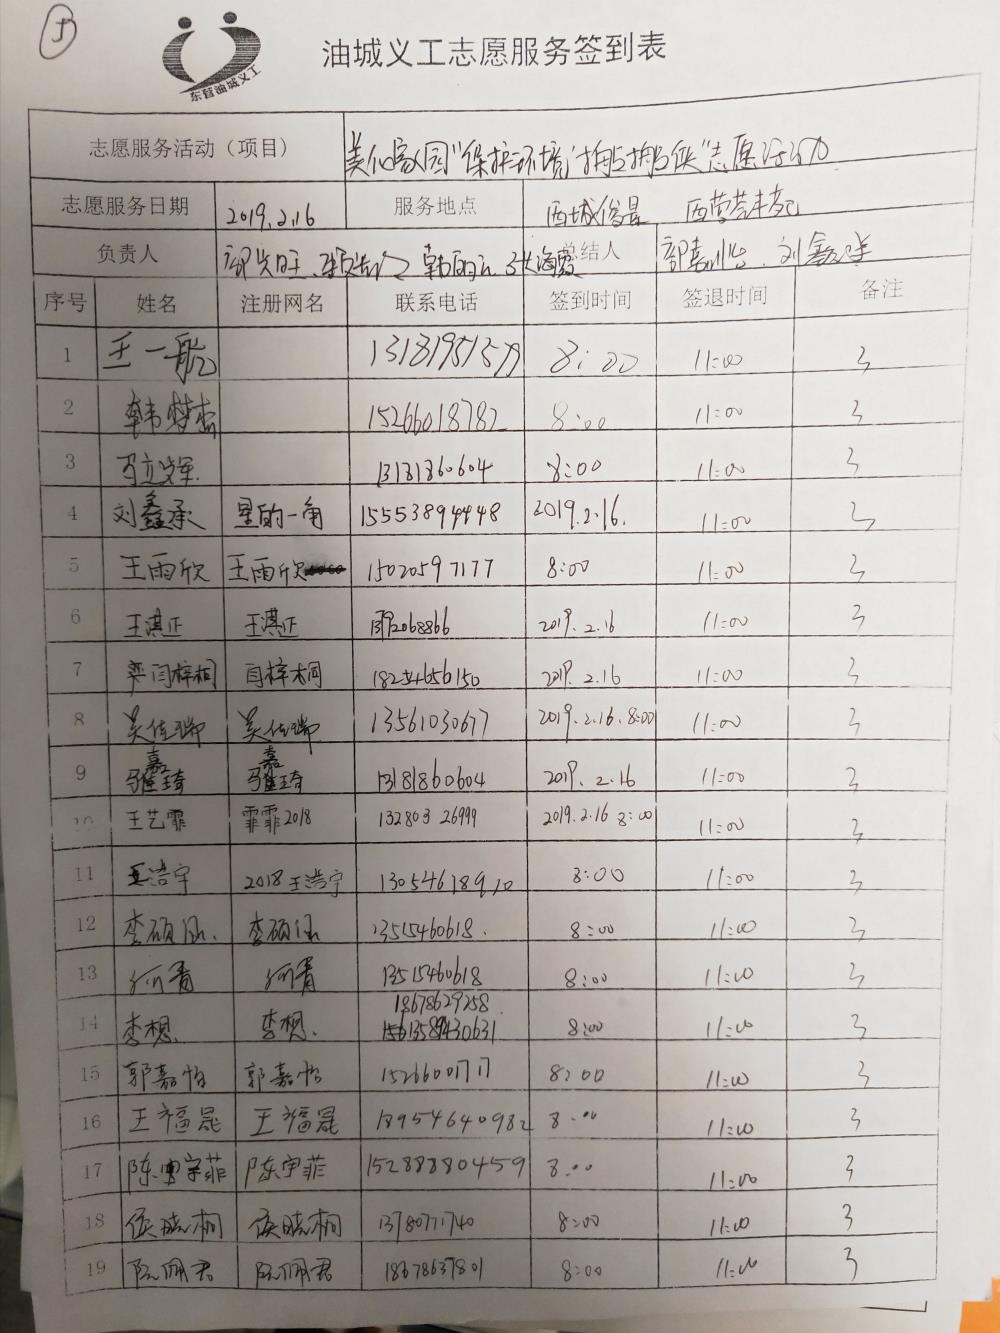 东营油城义工
油城义工志愿服务签到表
志愿服务活动（项目） 美化家园"保护环境 志愿活动
志愿服务日期 2019.2.16 服务地点 西城俊景 西营
负责人 总结人
序号 姓名 注册网名 联系电话 签到时间 签退时间 备注
1 王一航 8:00 11:00 3
2 韩梦杰 15266018782 8:00 11:00 3
3 13181860604 8:00 11:00 3
4 刘鑫承 星的一角 15553894448 2019.2.16. 11:00 3
5 王雨欣 王雨欣 15020597177 8:00 11:00 3
6 王淇正 王淇正 2019.2.16 11:00 3
7 闫梓桐 闫梓桐 18254656150 2019.2.16 11:00 3
8 吴佳瑞 吴佳瑞 13561030677 2019.2.16.8:00 11:00 3
9 13181860604 2019.2.16 11:00 3
10 王艺霏 霏霏2018 132803 26999 2019.2.16 8:00 11:00 3
11 王浩宇 2018王浩宇 13054618920 8:00 11:00 3
12 李硕涵 李硕涵 13515460618. 8:00 11:00 3
13 何青 何青 13515460618 8:00 11:00 3
14 李想. 李想. 18678629258. 8:00 11:00 3
15 郭嘉怡 郭嘉怡 15266001717 8:00 11:00 3
16 王福晟 王福晟 18954640982 8:00 11:00 3
17 陈宇菲 陈宇菲 15288880459 8:00 11:00 3
18 侯晓桐 侯晓桐 13780771740 8:00 11:00 3
19 阮佩君 阮佩君 18678637801 8:00 11:00 3